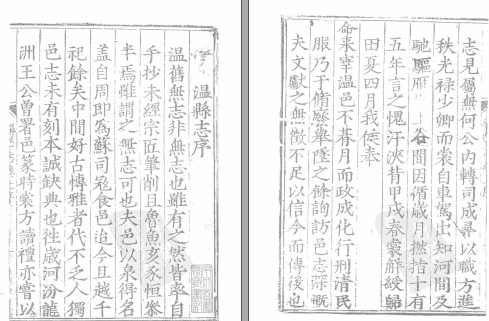 溫縣志序
溫舊無志非無志也雖有之然皆率自
手抄未經宗匠筆削且魯魚亥豕恒叅
半焉雖謂之無志可也夫邑以泉得名
蓋自周即為蘇司寇食邑迨今且越千
祀餘矣中間好古博雅者代不乏人獨
邑志未有刻本誠缺典也徃歲河汾龍
洲王公曾署邑篆時裳方讀禮亦嘗以
志見屬無何公內轉司成尋以職方進
秩光禄少卿而裳自車駕出知河間及
馳驅雁上谷間因循歲月撚指十有
五年言之愧汗浹背甲戌春裳觧綬歸
田夏四月我侯奉
命來宰温邑不朞月而政成化行刑清民
服乃于脩廢舉墜之餘詢訪邑志深慨
夫文獻之無徵不足以信今而傳後也